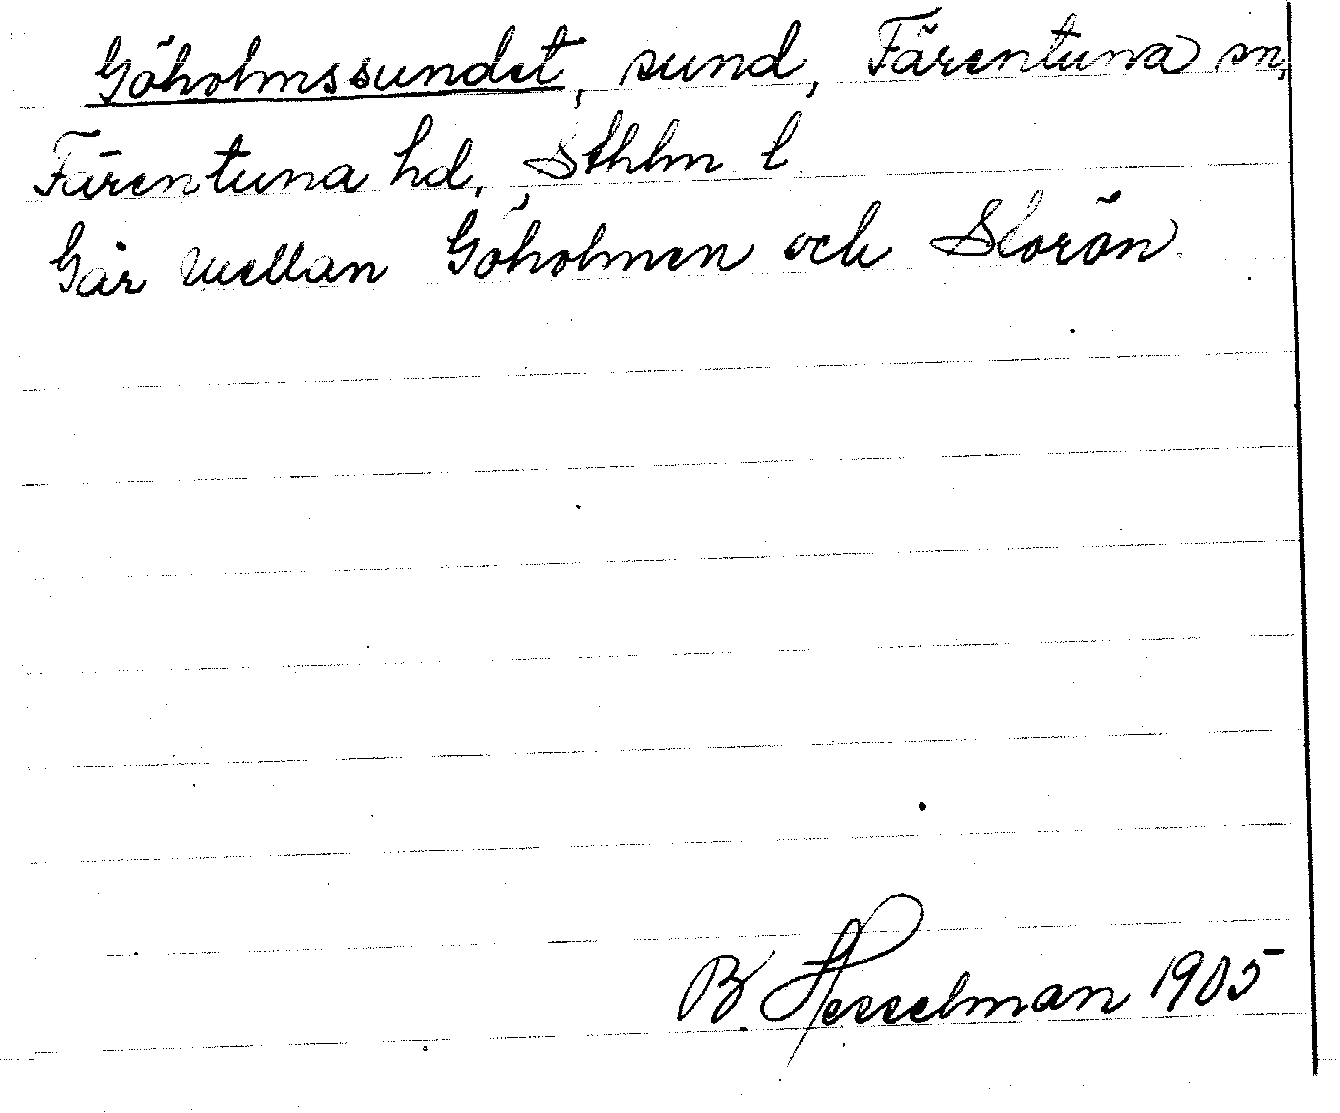 Göholmssundet, sund, Färentuna sn,
Färentuna hd, Sthlm l
Går mellan Göholmen och Slorön.
B. Hesselman 1905